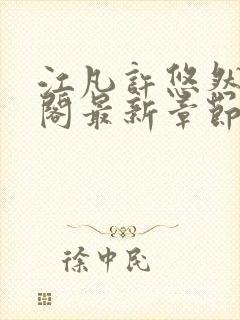 江凡許悠然
閣最新章節
徐中民